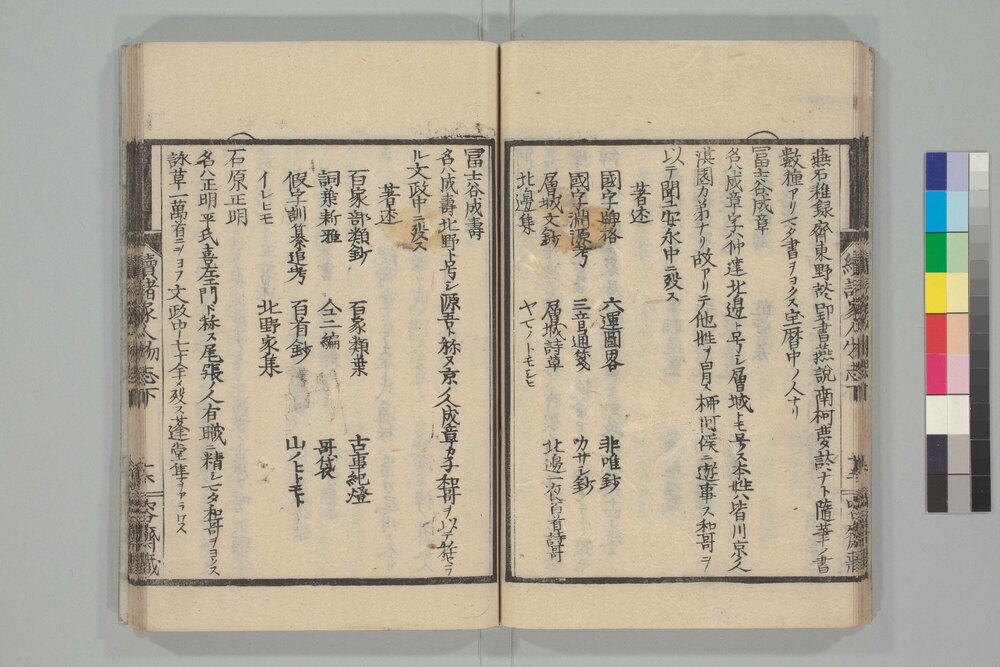 燕石雜録齊東野談卽書燕説南柯夢談ナト隨筆ノ書
數種アリマタ書ヲヨクス宝暦中ノ人ナリ
冨士谷成章
名ハ成章字ハ仲達北邊ト号シ層城トモ号ス本姓ハ皆川京ノ人
淇園カ弟ナリ故アリテ他姓ヲ冒ス柳河侯ニ遊事ス和哥ヲ
以テ聞エ安永中ニ殁ス
著述
國字典格 六運圖畧 非唯鈔
國字淵源考 三音通箋 カサシ鈔
層城文鈔 層城詩草 北邊一夜百首詩哥
北邊集 ヤマノトモシヒ
冨士谷成壽
名ハ成壽北野ト号シ源吾ト称ス京ノ人成章カ子和哥ヲ以テ
ル文政中ニ殁ス
著述
百家部類鈔 百家類葉 古事紀燈
詞葉新雅 仝二編 哥袋
假字訓纂追考 百首鈔 山ノヒトモト
イレヒモ 北野家集
石原正明
名ハ正明平氏喜左エ門ト称ス尾張ノ人有職ニ精シマタ和哥ヲヨクス
詠草一萬首ニヲヨフ文政中七十余ニメ殁ス蓬堂集ヲアラハス
續諸家人物志下